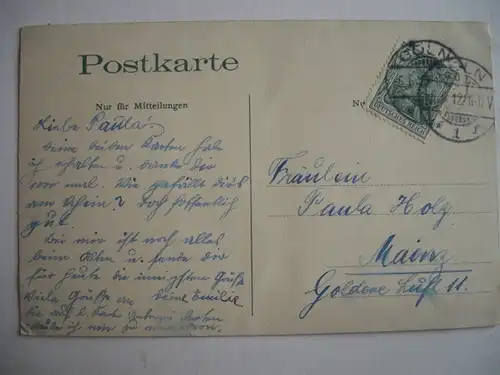 Postkarte
Nur für Mitteilungen
CÖLN
DEUTSCHES REICH
1
Liebe Paula!
Deine beiden Karten hab
ich erhalten u. danke dir
mal. Wie gefällt dirs
am Rhein? Doch hoffentlich
gut.
Bei mir ist noch alles
beim Alten u. sende dir
für heute die innigsten Grüße
Viele Grüße an Deine Emilie
Fräulein
Paula Holz
Mainz
Goldene Luft 11.